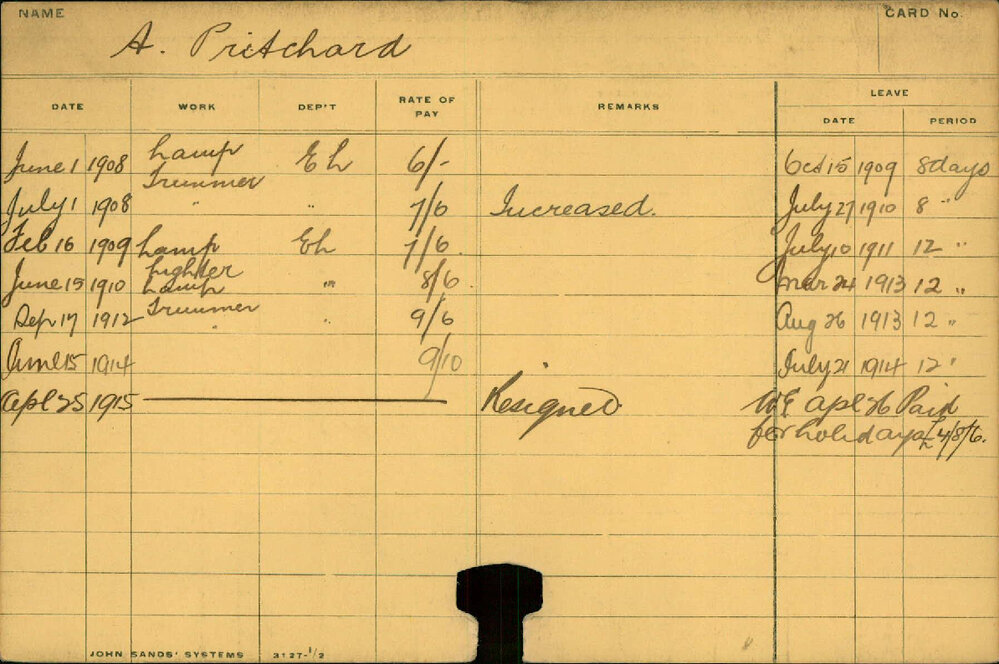 NAME CARD No.
A. Pritchard
LEAVE
DATE WORK DEP'T RATE OF PAY REMARKS DATE PERIOD
June 1 1908 Lamp Trimmer EL 6/- Oct 15 1909 8 days
July 1 1908 " " 7/6 Increased. July 27 1910 8 "
Feb 16 1909 Lamp Lighter EL 7/6 July 10 1911 12 "
June 15 1910 Lamp Trimmer " 8/6 Mar 24 1913 12 "
Sep 17 1912 " " 9/6 Aug 26 1913 12 "
June 15 1914 9/10 July 21 1914 12 "
Apl 25 1915 Resigned W.E. Apl 26 Paid
for holidays 4/8/6.
JOHN SANDS' SYSTEMS 3127-1/2